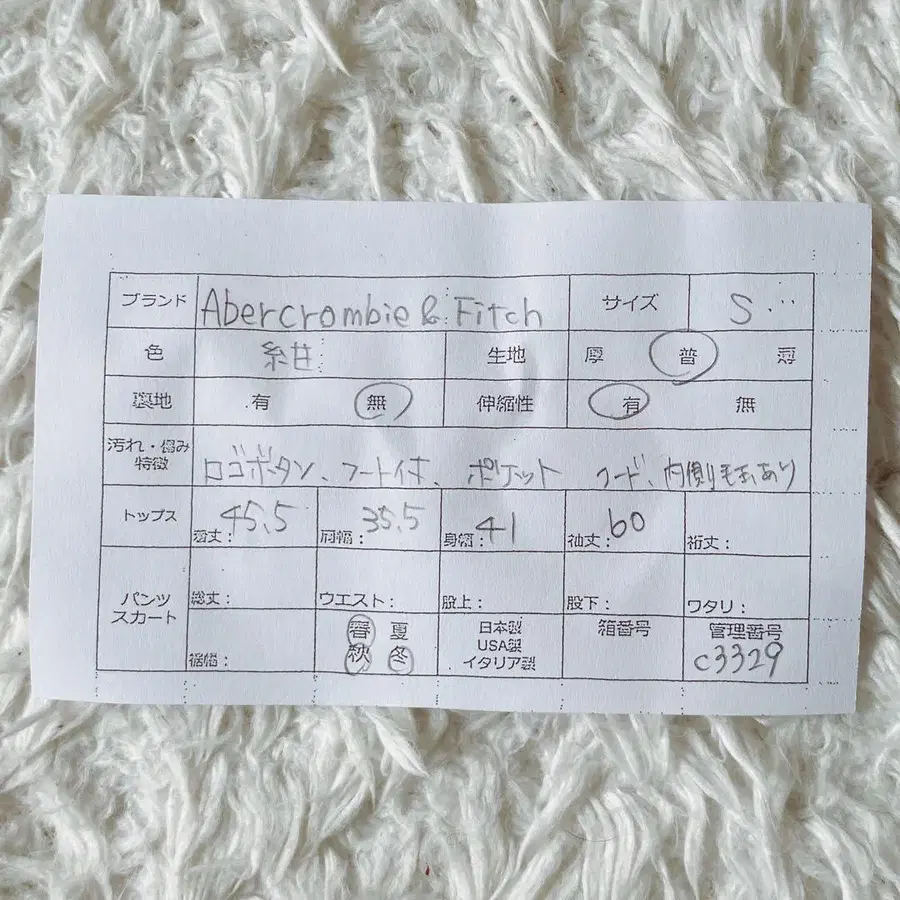 ブランド Abercrombie & Fitch サイズ S
色 紺 生地 厚 普 薄
裏地 有 無 伸縮性 有 無
汚れ・傷み
特徴 ロゴボタン、フード付き、ポケット フード、内側あり
トップス 着丈: 45.5 肩幅: 35.5 身幅: 41 袖丈: 60 裄丈:
パンツ
スカート 総丈: ウエスト: 股上: 股下: ワタリ:
裾幅: 春 夏 秋 冬 日本製 USA製 イタリア製 箱番号 管理番号
c3329